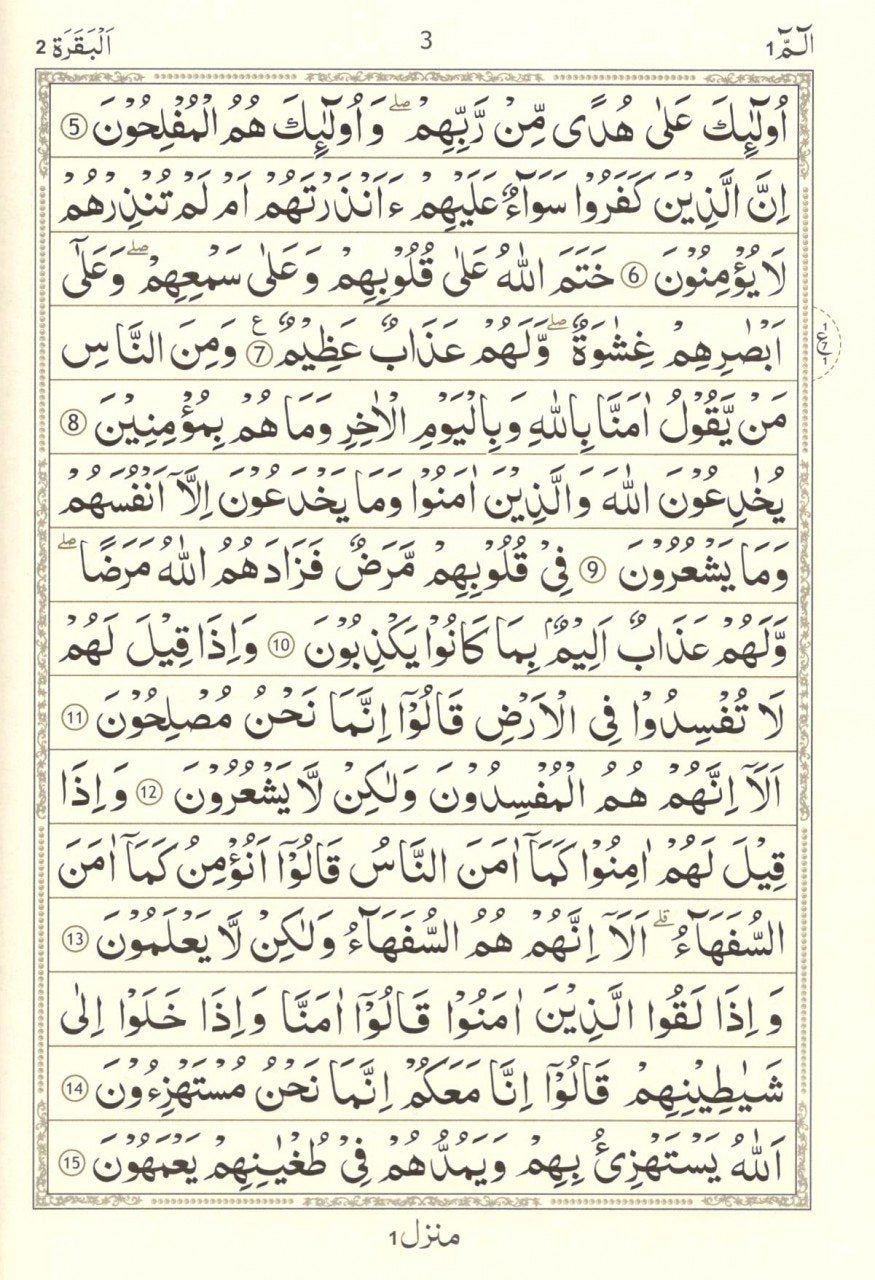 الٓمّٓ 1 3 اَلْبَقَرَة 2
اُولٰٓئِكَ عَلٰى هُدًى مِّنْ رَّبِّهِمْ ۖ وَاُولٰٓئِكَ هُمُ الْمُفْلِحُوْنَ 5
اِنَّ الَّذِيْنَ كَفَرُوْا سَوَآءٌ عَلَيْهِمْ ءَاَنْذَرْتَهُمْ اَمْ لَمْ تُنْذِرْهُمْ
لَا يُؤْمِنُوْنَ 6 خَتَمَ اللّٰهُ عَلٰى قُلُوْبِهِمْ وَعَلٰى سَمْعِهِمْ ۖ وَعَلٰٓى
اَبْصَارِهِمْ غِشَاوَةٌ ۖ وَّلَهُمْ عَذَابٌ عَظِيْمٌ 7 ع وَمِنَ النَّاسِ
مَنْ يَّقُوْلُ اٰمَنَّا بِاللّٰهِ وَبِالْيَوْمِ الْاٰخِرِ وَمَا هُمْ بِمُؤْمِنِيْنَ 8
يُخٰدِعُوْنَ اللّٰهَ وَالَّذِيْنَ اٰمَنُوْا وَمَا يَخْدَعُوْنَ اِلَّآ اَنْفُسَهُمْ
وَمَا يَشْعُرُوْنَ 9 فِيْ قُلُوْبِهِمْ مَّرَضٌ فَزَادَهُمُ اللّٰهُ مَرَضًا ۖ
وَّلَهُمْ عَذَابٌ اَلِيْمٌۢ بِمَا كَانُوْا يَكْذِبُوْنَ 10 وَاِذَا قِيْلَ لَهُمْ
لَا تُفْسِدُوْا فِى الْاَرْضِ قَالُوْٓا اِنَّمَا نَحْنُ مُصْلِحُوْنَ 11
اَلَآ اِنَّهُمْ هُمُ الْمُفْسِدُوْنَ وَلٰكِنْ لَّا يَشْعُرُوْنَ 12 وَاِذَا
قِيْلَ لَهُمْ اٰمِنُوْا كَمَآ اٰمَنَ النَّاسُ قَالُوْٓا اَنُؤْمِنُ كَمَآ اٰمَنَ
السُّفَهَآءُ ۗ اَلَآ اِنَّهُمْ هُمُ السُّفَهَآءُ وَلٰكِنْ لَّا يَعْلَمُوْنَ 13
وَاِذَا لَقُوا الَّذِيْنَ اٰمَنُوْا قَالُوْٓا اٰمَنَّا وَاِذَا خَلَوْا اِلٰى
شَيٰطِيْنِهِمْ قَالُوْٓا اِنَّا مَعَكُمْ اِنَّمَا نَحْنُ مُسْتَهْزِءُوْنَ 14
اَللّٰهُ يَسْتَهْزِئُ بِهِمْ وَيَمُدُّهُمْ فِيْ طُغْيَانِهِمْ يَعْمَهُوْنَ 15
منزل 1